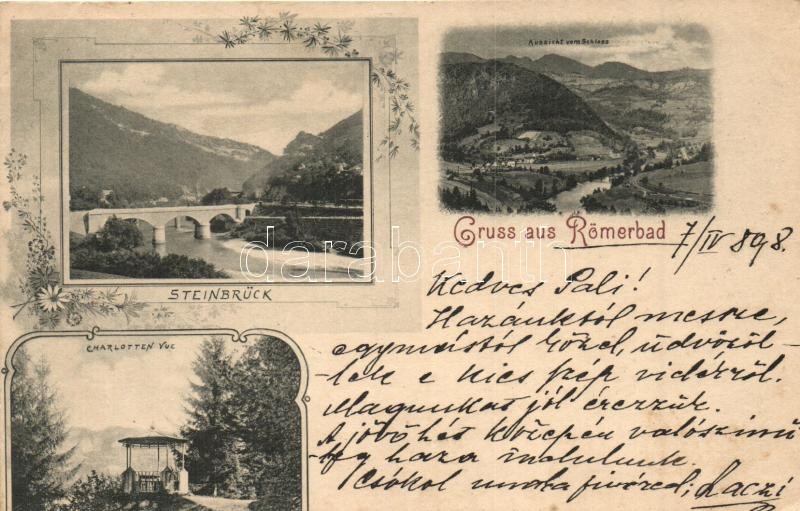 Aussicht vom Schloss
Gruss aus Römerbad
7/IV 898.
STEINBRÜCK
CHARLOTTEN VUE
darabanth
Kedves Pali!
Hazánktól messze,
egymástól közel, üdvözöl-
-lek e kies szép vidékről.
Magunkat jól érezzük.
A jövő hét közepén valószinü-
leg haza indulunk.
Csókol unoka fivéred; Laczi